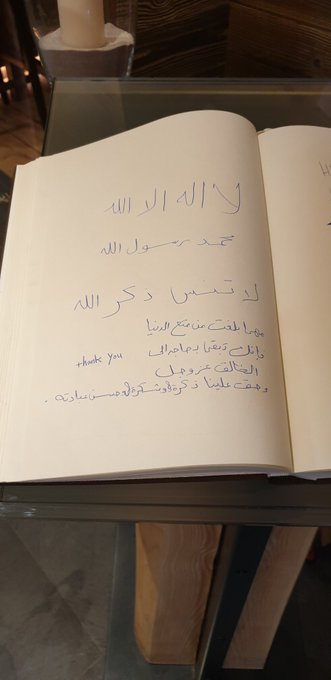 لا اله الا الله
محمد رسول الله
لا تنس ذكر الله
مهما بلغت من متع الدنيا
تبقى بحاجه الى
thank you
الخالق عز وجل
وحق علينا ذكره وشكره وحسن عبادته .
H